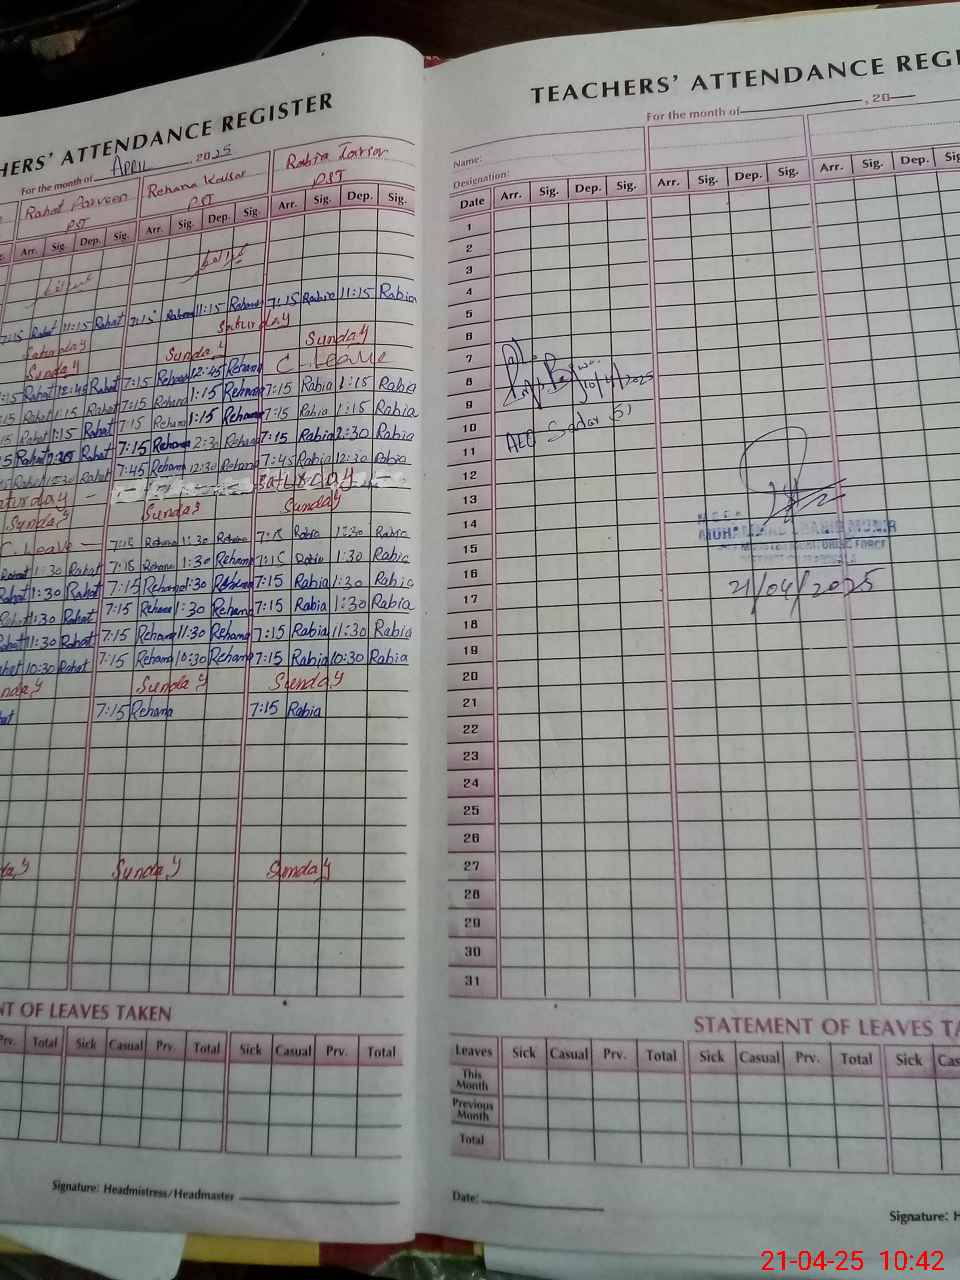 HERS' ATTENDANCE REGISTER
For the month of APRIL, 2025
Rahat Parveen Rehana Kausar Rabia
PST PST PST
Arr. Sig. Dep. Sig. Arr. Sig. Dep. Sig. Arr. Sig. Dep. Sig.
7:15 Rahat 11:15 Rahat 7:15 Rehana 11:15 Rehana 7:15 Rabia 11:15 Rabia
Saturday Saturday
Sunday Sunday Sunday
7:15 Rahat 12:45 Rahat 7:15 Rehana 12:45 Rehana C-Leave
:15 Rahat 1:15 Rahat 7:15 Rehana 1:15 Rehana 7:15 Rabia 1:15 Rabia
15 Rahat 1:15 Rahat 7:15 Rehana 1:15 Rehana 7:15 Rabia 1:15 Rabia
5 Rahat 2:30 Rahat 7:15 Rehana 2:30 Rehana 7:15 Rabia 2:30 Rabia
Rahat 12:30 Rahat 7:45 Rehana 12:30 Rehana 7:45 Rabia 12:30 Rabia
aturday - Saturday
Sunday Sunday Sunday
C-Leave - 7:15 Rehana 1:30 Rehana 7:15 Rabia 1:30 Rabia
Rahat 1:30 Rahat 7:15 Rehana 1:30 Rehana 7:15 Rabia 1:30 Rabia
Rahat 1:30 Rahat 7:15 Rehana 1:30 Rehana 7:15 Rabia 1:30 Rabia
Rahat 1:30 Rahat 7:15 Rehana 1:30 Rehana 7:15 Rabia 1:30 Rabia
Rahat 11:30 Rahat 7:15 Rehana 11:30 Rehana 7:15 Rabia 11:30 Rabia
ahat 10:30 Rahat 7:15 Rehana 10:30 Rehana 7:15 Rabia 10:30 Rabia
nday Sunday Sunday
hat 7:15 Rehana 7:15 Rabia
day Sunday Sunday
NT OF LEAVES TAKEN
Prv. Total Sick Casual Prv. Total Sick Casual Prv. Total
Signature: Headmistress/Headmaster
TEACHERS' ATTENDANCE REGI
For the month of , 20
Name:
Designation:
Date Arr. Sig. Dep. Sig. Arr. Sig. Dep. Sig. Arr. Sig. Dep. Sig
1
2
3
4
5
6
7
8
10/4/2025
9
10
AEO Sadar
11
12
13
14
15
16
21/04/2025
17
18
19
20
21
22
23
24
25
26
27
28
29
30
31
STATEMENT OF LEAVES TA
Leaves Sick Casual Prv. Total Sick Casual Prv. Total Sick Cas
This Month
Previous Month
Total
Date:
Signature: H
21-04-25 10:42